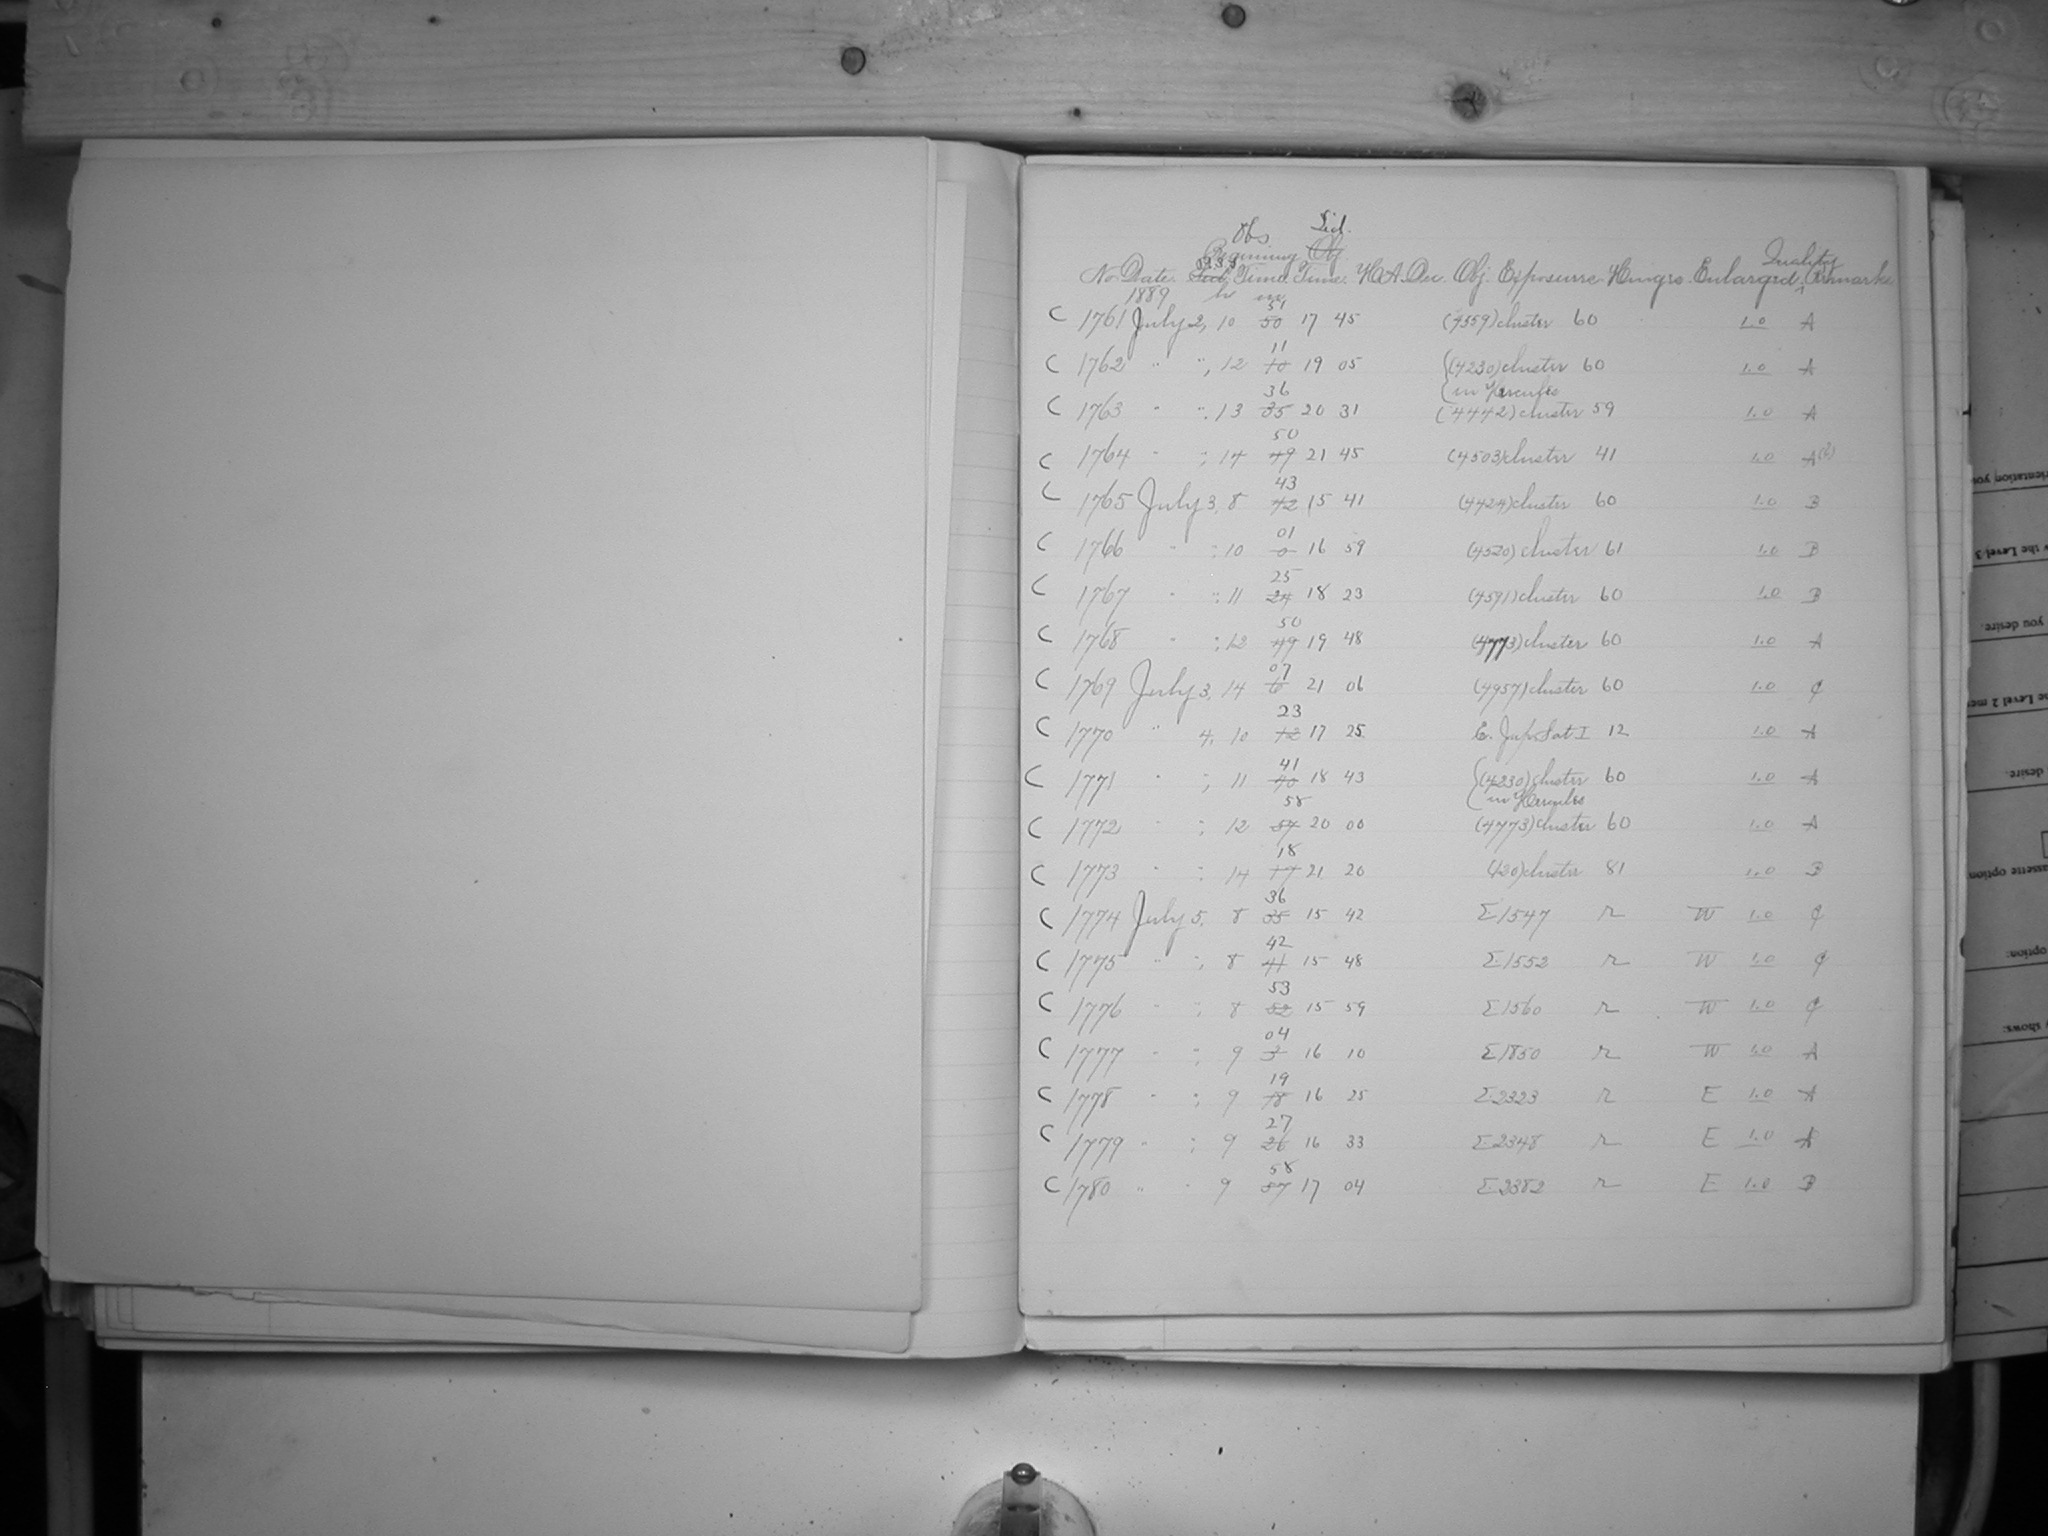 Obs. Sid.
Beginning Obj. Quality
No. Date. Sid. Time. Time. H.A. Dec. Obj. Exposure. Hungro. Enlarged. Remarks
1889 h m
51
C 1761 July 2, 10 50 17 45 (4559) cluster 60 1.0 A
11
C 1762 " ", 12 10 19 05 {(4230) cluster 60 1.0 A
36 {in Hercules
C 1763 " ". 13 35 20 31 (4442) cluster 59 1.0 A
50
C 1764 " ; 14 49 21 45 (4503) cluster 41 1.0 A
43
C 1765 July 3, 8 42 15 41 (4424) cluster 60 1.0 B
01
C 1766 " ; 10 0 16 59 (4520) cluster 61 1.0 B
25
C 1767 " ; 11 24 18 23 (4591) cluster 60 1.0 B
50
C 1768 " ; 12 49 19 48 (4773) cluster 60 1.0 A
07
C 1769 July 3, 14 6 21 06 (4957) cluster 60 1.0 C
23
C 1770 " 4, 10 12 17 25 E. Jup. Sat I 12 1.0 A
41
C 1771 " ; 11 40 18 43 {(4230) cluster 60 1.0 A
58 {in Hercules
C 1772 " ; 12 57 20 00 (4773) cluster 60 1.0 A
18
C 1773 " ; 14 17 21 20 (120) cluster 81 1.0 B
36
C 1774 July 5, 8 35 15 42 Σ1547 r W 1.0 C
42
C 1775 " ; 8 41 15 48 Σ1552 r W 1.0 C
53
C 1776 " ; 8 52 15 59 Σ1560 r W 1.0 C
04
C 1777 " ; 9 3 16 10 Σ1850 r W 1.0 A
19
C 1778 " ; 9 18 16 25 Σ2323 r E 1.0 A
27
C 1779 " ; 9 26 16 33 Σ2348 r E 1.0 A
58
C 1780 " " 9 57 17 04 Σ2382 r E 1.0 B